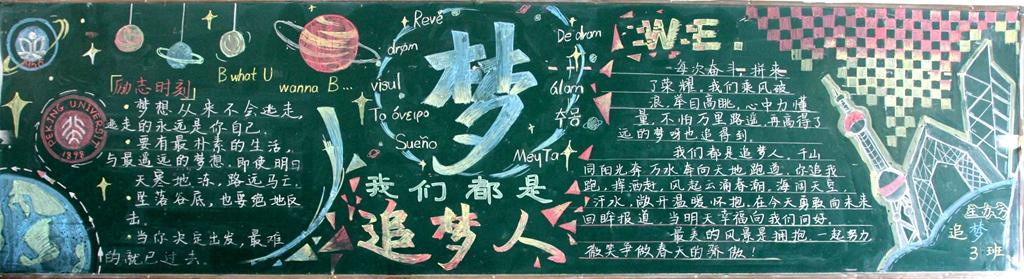 「励志时刻」
•梦想从来不会逃走,
逃走的永远是你自己.
•要有最朴素的生活,
与最遥远的梦想.即使明日
天寒地冻,路远马亡.
•坠落谷底,也要绝地反
击.
•当你决定出发,最难
的就已过去.
PEKING UNIVERSITY
1898
B what U
wanna B...
Reve
drøm
visul
Το όνειρο
Sueño
De dram
꿈
Glam
수응
MeyTa
梦
我们都是
追梦人
WE
每次奋斗,拼来
了荣耀,我们乘风破
浪,举目高眺,心中力懂
量,不怕万里路遥,再高得了
远的梦呀也追得到.
我们都是追梦人,千山
同阳光奔万水奔向天地跑道,你追我
跑,挥洒赶,风起云涌春潮,海阔天空,
汗水,敞开温暖怀抱,在今天勇敢向未来
回眸报道,当明天幸福向我们问好.
最美的风景是拥抱,一起努力
微笑争做春天的骄傲!
追梦
3班